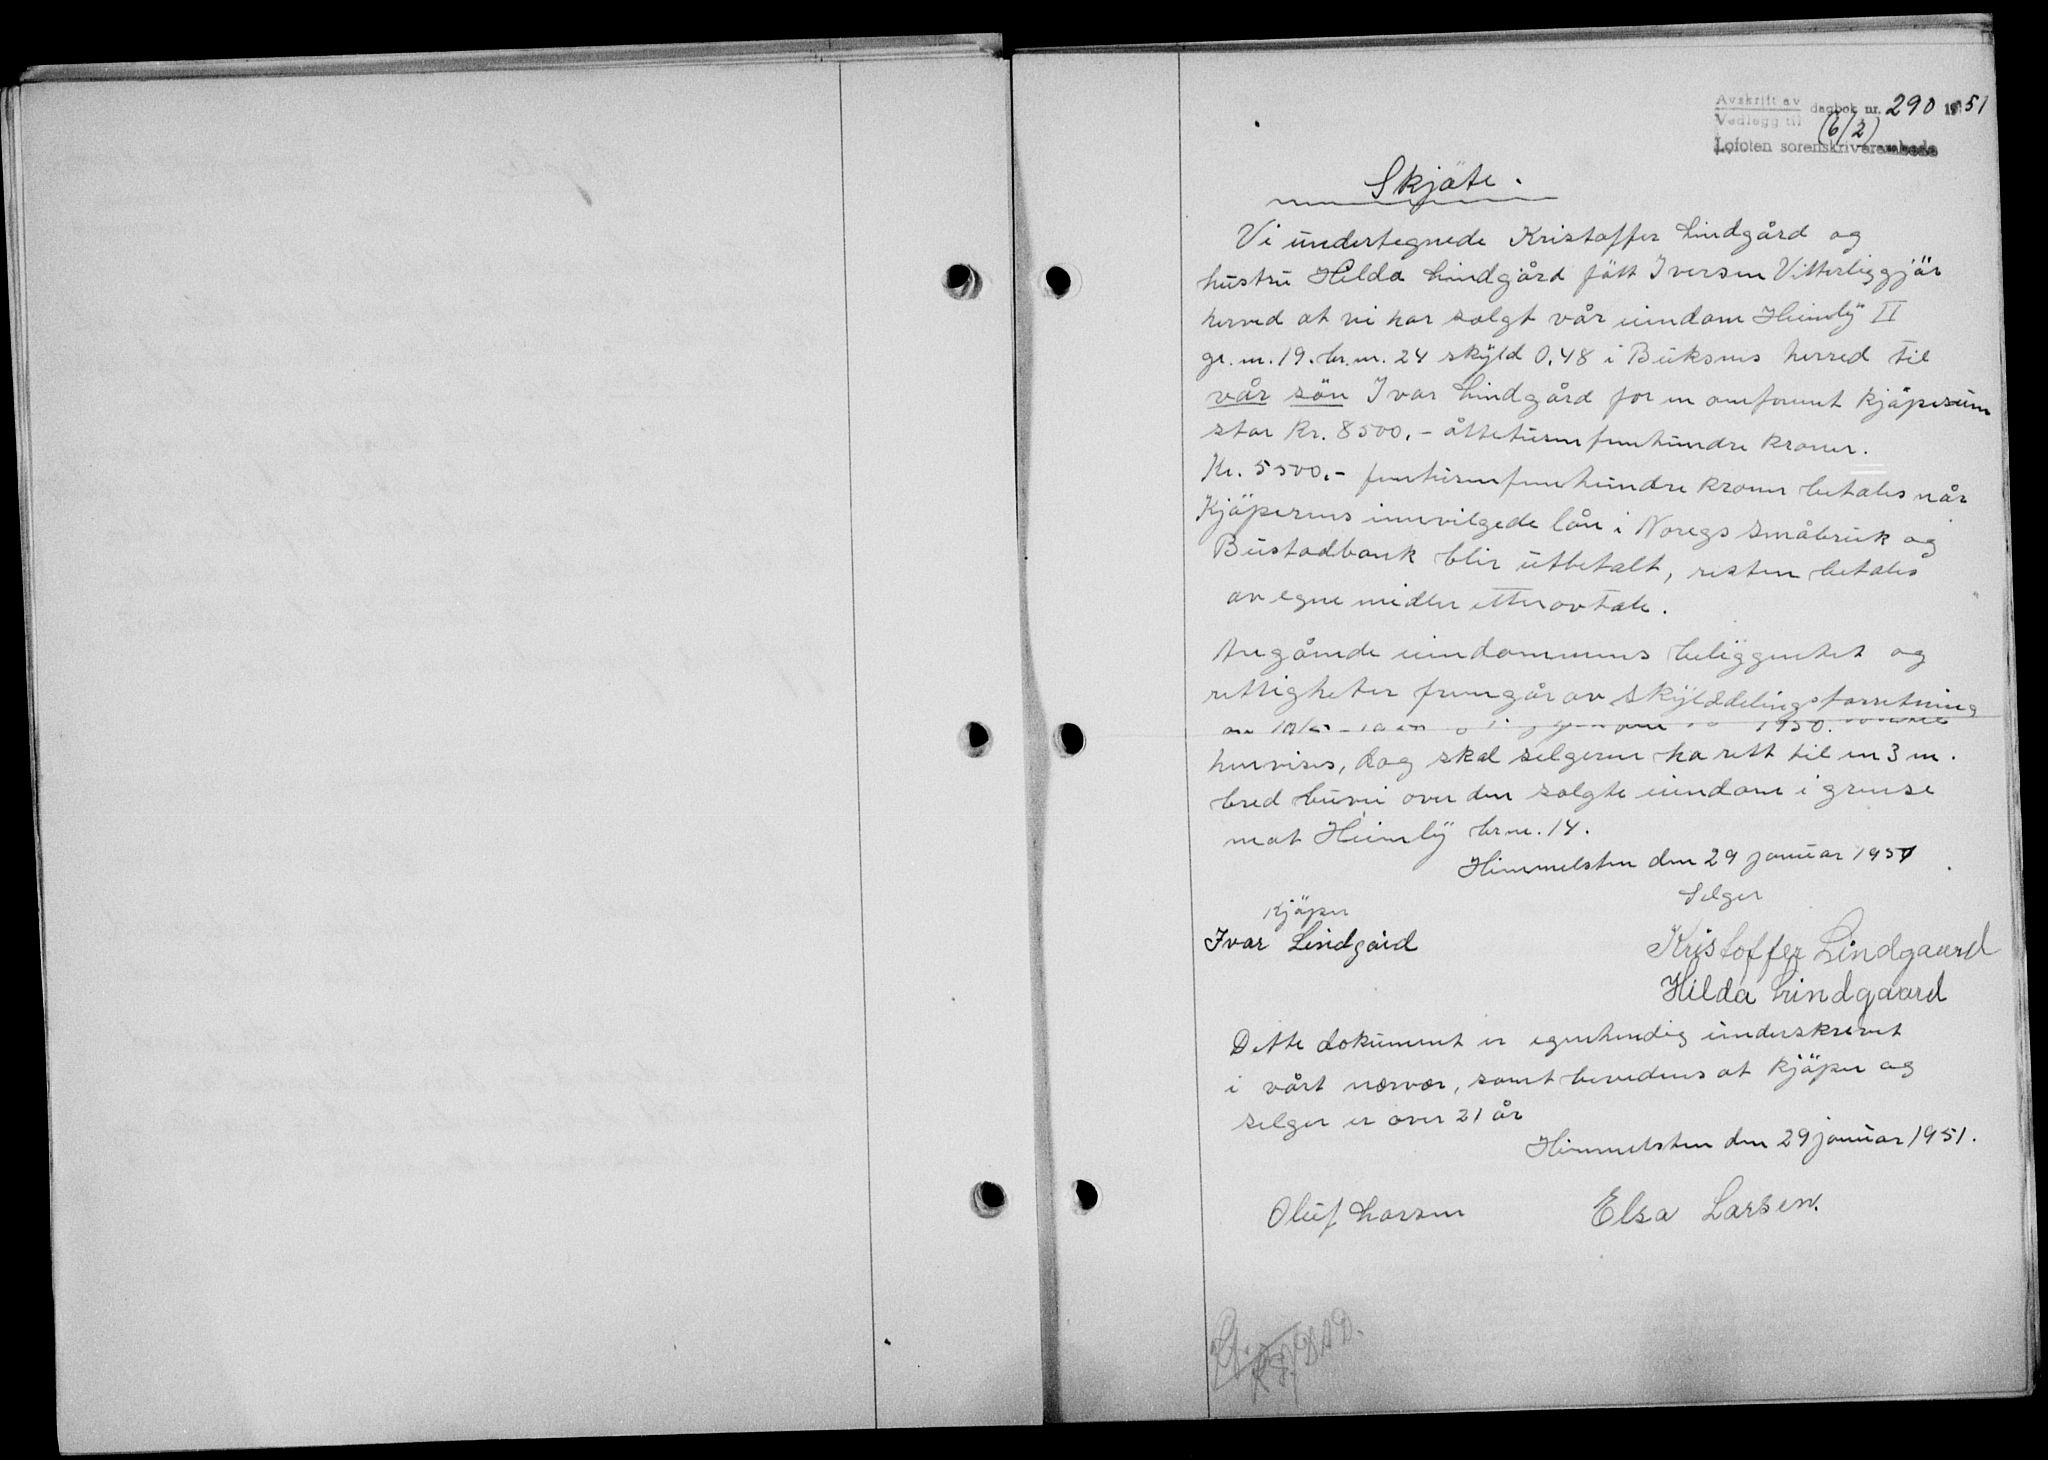 Avskrift av
Vedlegg til dagbok nr. 290 1951
(6/2)
Lofoten sorenskriverembede
Skjöte.
Vi undertegnede Kristoffer Lindgård og
hustru Hilda Lindgård fött Iversen Vitterliggjör
herved at vi har solgt vår eiendom Heimly II
gr. nr. 19. br. nr. 24 skyld 0,48 i Buksnes herred til
vår sön Ivar Lindgård for en omforent kjöpesum
stor Kr. 8500.- åttetusenfemhundre kroner.
Kr. 5500.- femtusenfemhundre kroner betales når
Kjöperens innvilgede lån i Noregs småbruk og
Bustadbank blir utbetalt, resten betales
av egne midler etter avtale.
Angående eiendommens beliggenhet og
rettigheter fremgår av skylddelingsforretning
av 1950.
henvises, dog skal selgeren ha rett til en 3 m.
bred buvei over den solgte eiendom i grense
mot Heimly br nr. 14.
Himmelsten den 29 januar 1951
Kjöper Selger
Ivar Lindgård Kristoffer Lindgaard
Hilda Lindgaard
Dette dokument er egenhendig underskrevet
i vårt nærvær, samt bevidnes at kjöper og
selger er over 21 år
Himmelsten den 29 januar 1951.
Oluf Larsen Elsa Larsen.